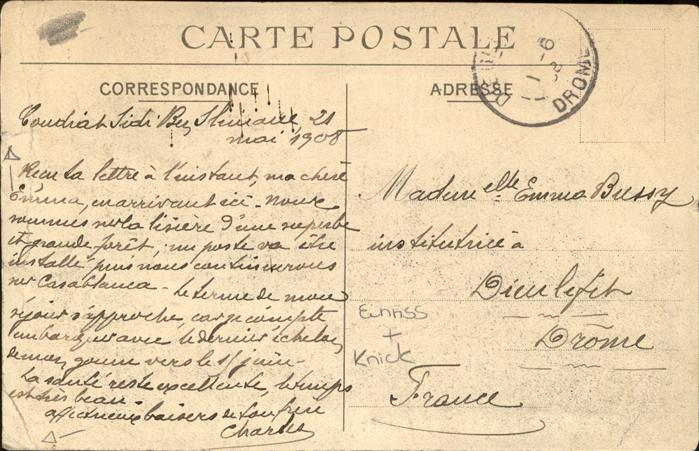 CARTE POSTALE
CORRESPONDANCE
ADRESSE
DROME
1 - 6
Sidi Ben Slimane 21
mai 1908
Reçu ta lettre à l'instant, ma chère
Emma, en arrivant ici - Nous
sommes sur la lisière d'une superbe
et grande forêt, un poste va être
installé puis nous continuerons
sur Casablanca - Le terme de mon
séjour s'approche, car je compte
embarquer avec le dernier échelon
vers le 15 juin -
La santé reste excellente, le temps
est très beau -
Affectueux baisers de ton frère
Charles
Mademelle Emma Bussy
institutrice à
Dieulefit
Drôme
France
EINRSS
+
Knick